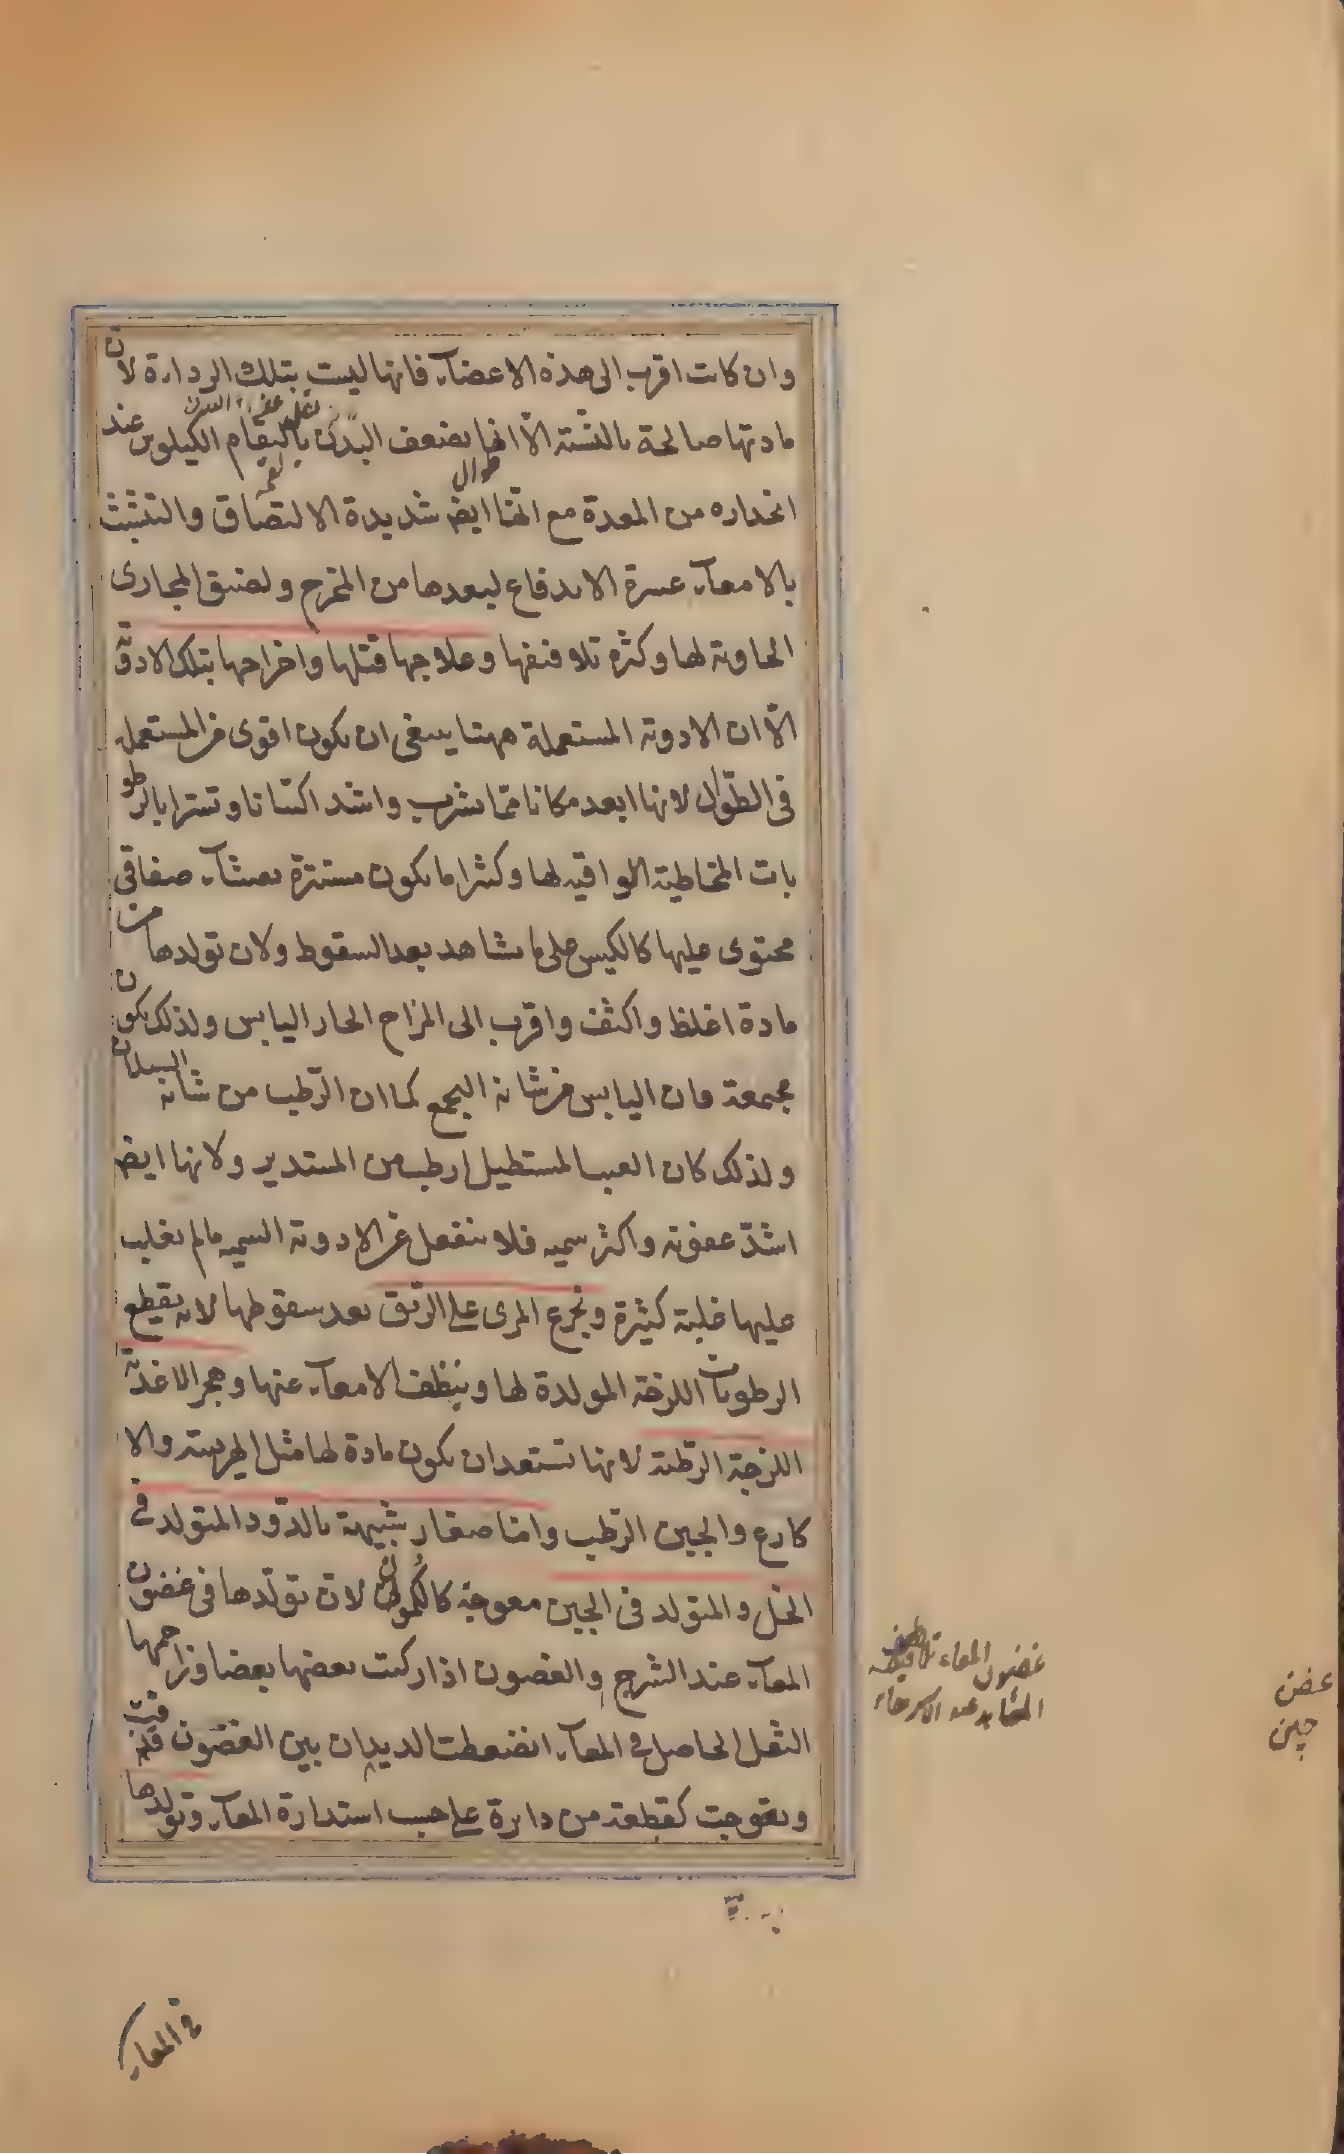 وان كانت اقرب الى هذه الاعضآء فانها ليست بتلك الرداءة لانّ
مادتها صالحة بالنسبة الّا انها يضعف البدن بالتقام الكيلوس عند
انحداره من المعدة مع انّها ايض شديدة الالتصاق والتشبث
بالامعآء عسرة الاندفاع لبعدها من المخرج ولضيق المجارى
الحاوية لها وكثرة تلافيفها وعلاجها قتلها واخراجها بتلك الادوية
الّا ان الادوية المستعملة ههنا ينبغى ان يكون اقوى من المستعملة
فى الطّوال لانها ابعد مكانا مما يشرب واشد اكتنانا وتسترا بالرطو
بات المخاطية الواقية لها وكثيرا ما يكون مستترة بغشآء صفاقى
محتوى عليها كالكيس على ما يشاهد بعد السقوط ولان تولدها من
مادة اغلظ واكثف واقرب الى المزاج الحار اليابس ولذلك يكون
مجمعة فان اليابس من شانه التجمع كما ان الرّطب من شانه السيلان
ولذلك كان العنب المستطيل ارطب من المستدير ولانها ايض
اشدّ عفونة واكثر سمية فلا ينفعل عن الادوية السمية ما لم يغلب
عليها غلبة كثيرة وتجرع المرى على الرّيق بعد سقوطها لانه يقطع
الرطوبات اللزجة المولدة لها وينظف الامعآء عنها وهجر الاغذية
اللزجة الرّطبة لانها تستعد ان يكون مادة لها مثل الهريسة والا
كارع والجبن الرّطب وامّا صغار شبيهة بالدّود المتولد فى
الخل والمتولد فى الجبن معوجة كالكمون لان تولّدها فى غضون
المعآء عند الشرج والغضون اذا ركبت بعضها بعضا وزاحمها
الثفل الحاصل فى المعآء انضغطت الديدان بين الغضون
وتعوجت كقطعة من دايرة على حسب استدارة المعآء وتولدها
غضون المعاء
غضن
چين
فى المعاء